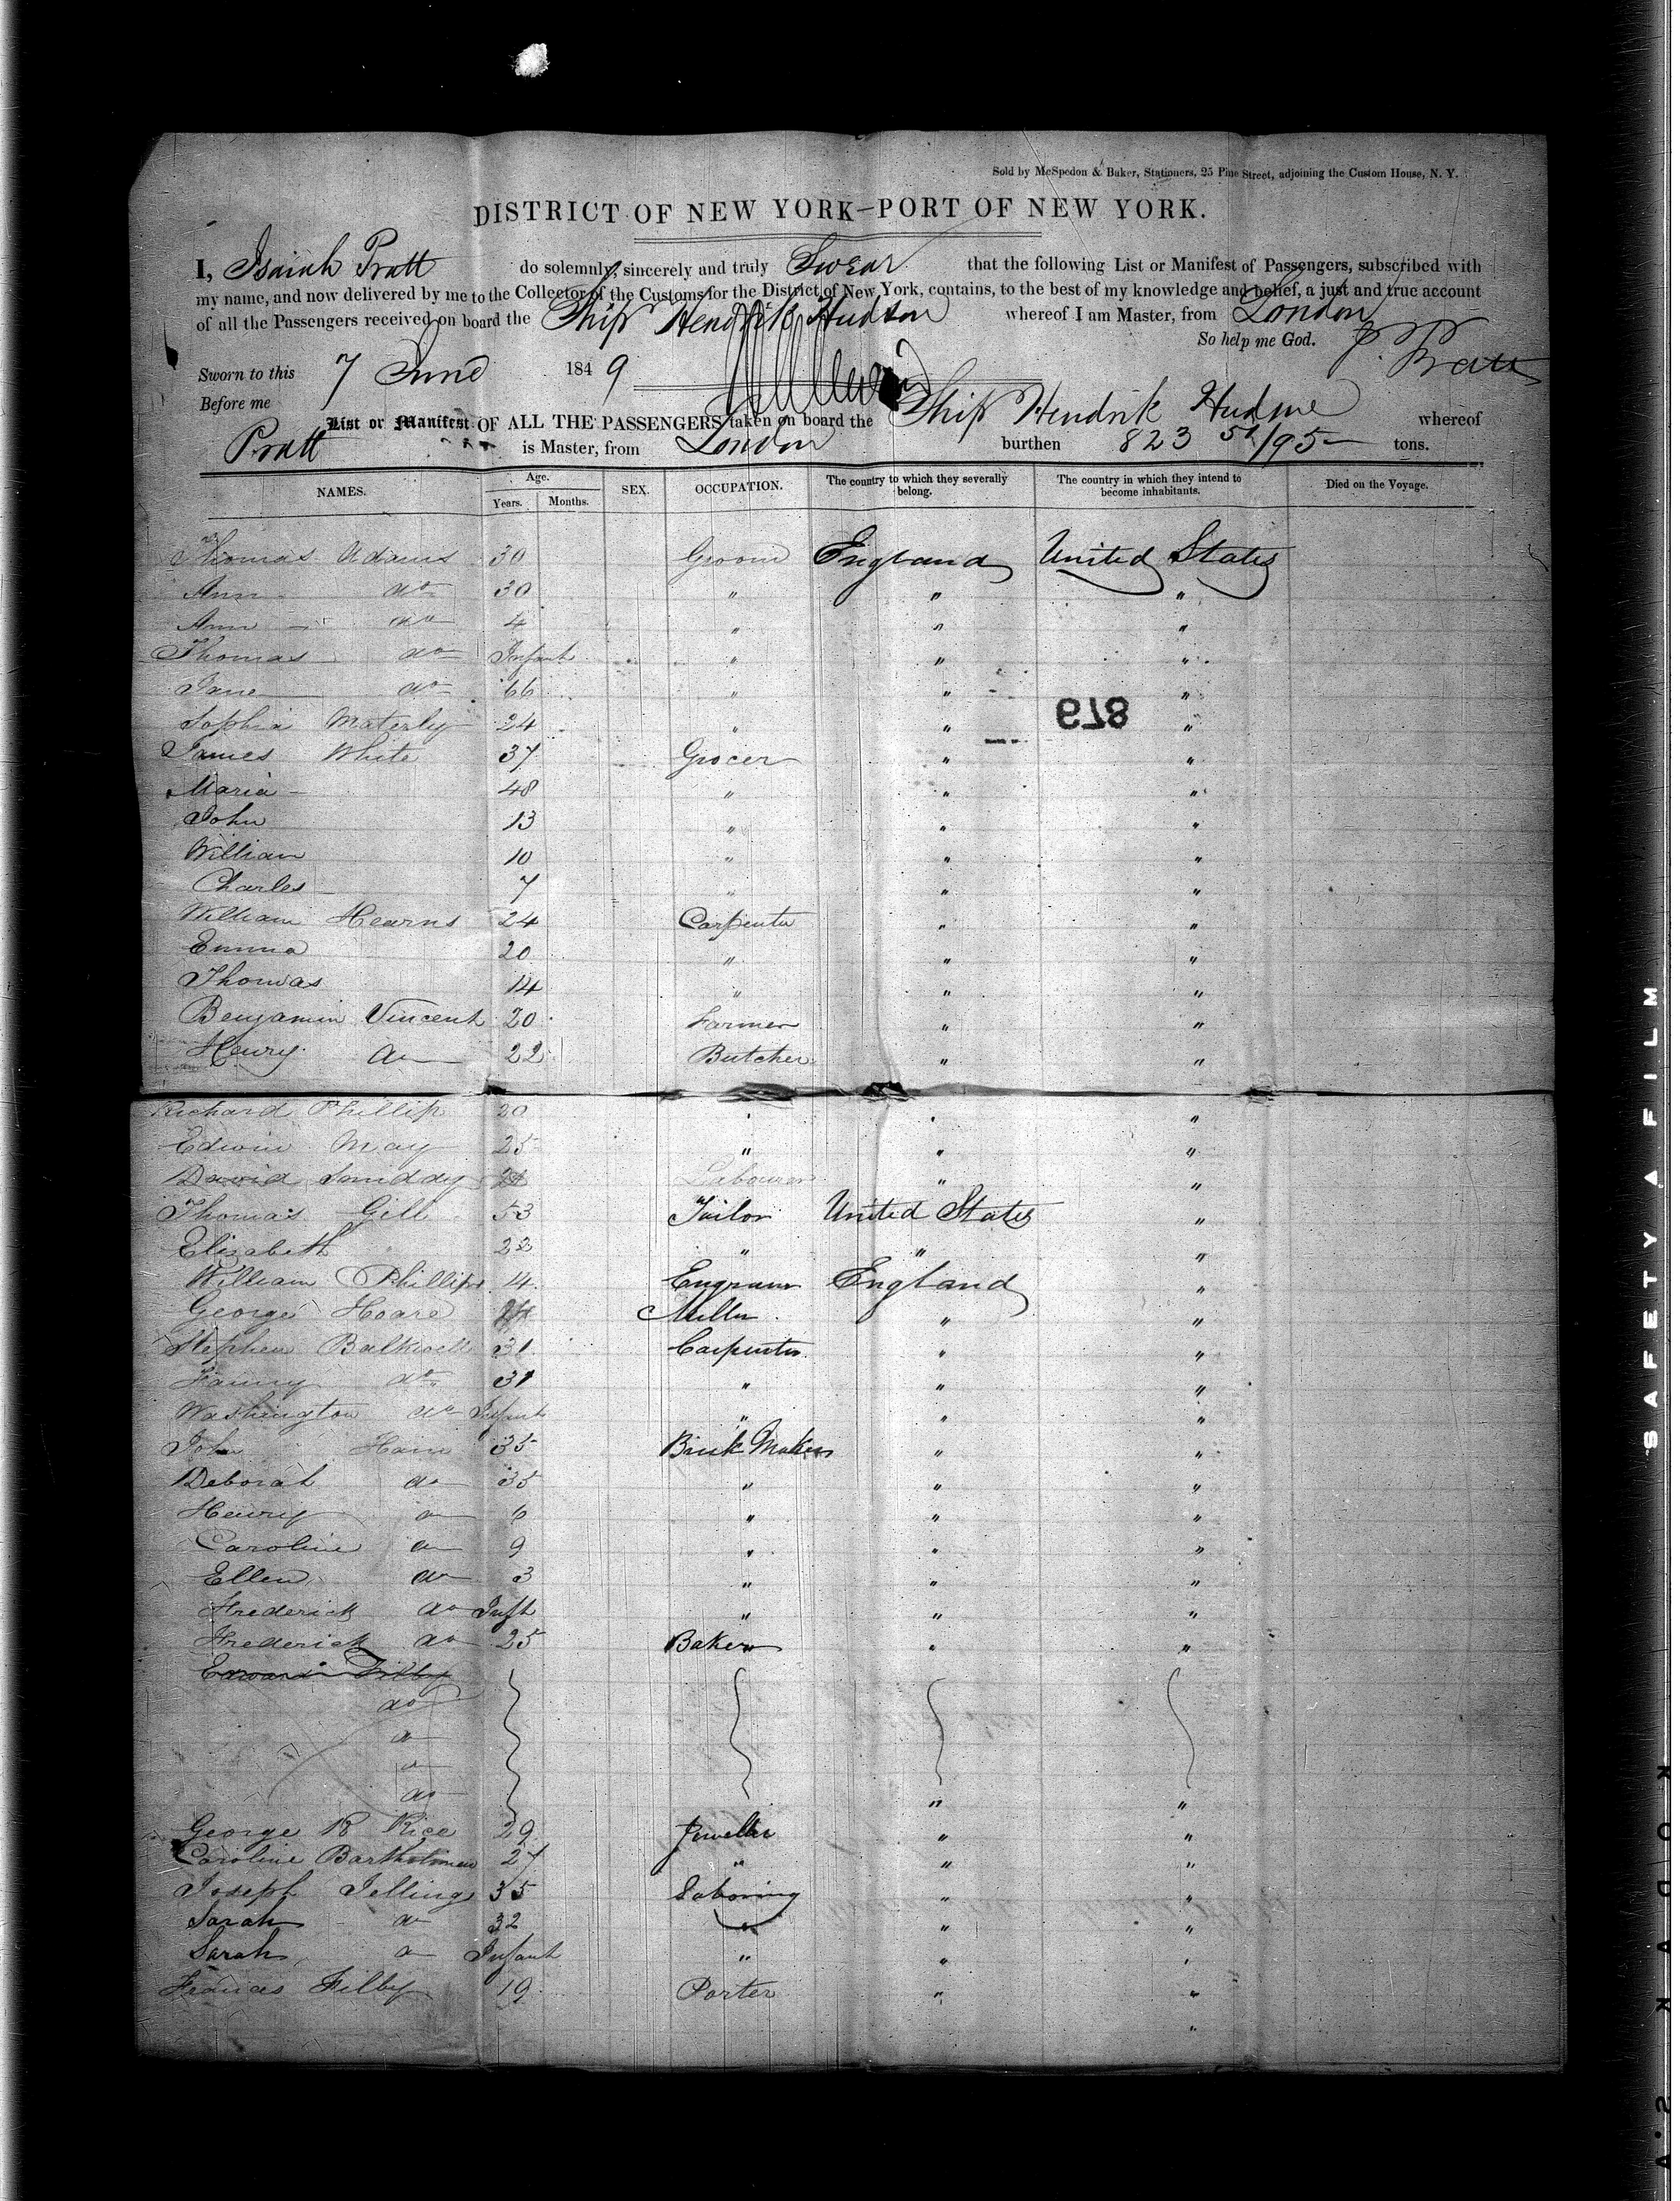 Sold by McSpedon & Baker, Stationers, 25 Pine Street, adjoining the Custom House, N. Y.
DISTRICT OF NEW YORK—PORT OF NEW YORK.
I, Isaiah Pratt do solemnly, sincerely and truly Swear that the following List or Manifest of Passengers, subscribed with
my name, and now delivered by me to the Collector of the Customs for the District of New York, contains, to the best of my knowledge and belief, a just and true account
of all the Passengers received on board the Ship Hendrik Hudson whereof I am Master, from London
So help me God. Pratt
Sworn to this 7 June 1849
Before me
List or Manifest OF ALL THE PASSENGERS taken on board the Ship Hendrik Hudson whereof
Pratt is Master, from London burthen 823 52/95 tons.
NAMES. Age. Years. Months. SEX. OCCUPATION. The country to which they severally belong. The country in which they intend to become inhabitants. Died on the Voyage.
Thomas Adams 30 Groom England United States
Ann do 30 " " "
Ann do 4 " " "
Thomas do Infant " " "
Jane do 66 " " "
879
Sophia Materly 24 " " "
James White 37 Grocer " "
Maria 48 " " "
John 13 " " "
William 10 " " "
Charles 7 " " "
William Hearns 24 Carpenter " "
Emma 20 " " "
Thomas 14 " " "
Benjamin Vincent 20 Farmer " "
Henry do 22 Butcher " "
Richard Phillip 20 " " "
Edwin May 25 " " "
David Smiddy Labourer " "
Thomas Gill 53 Tailor United States "
Elizabeth 22 " " "
William Phillips 14 Engraver England "
George Hoare Miller " "
Stephen Balkwell 31 Carpenter " "
Fanny do 31 " " "
Washington do Infant " " "
John Ham 35 Brick Maker " "
Deborah do 35 " " "
Henry do 6 " " "
Caroline do 9 " " "
Ellen do 3 " " "
Frederick do Inft " " "
Frederick do 25 Baker " "
Edward Filby
do
do
do
do " "
George R Rice 29 Jeweller " "
Caroline Bartholomew 27 " " "
Joseph Jellings 35 Laboring " "
Sarah do 32 " " "
Sarah do Infant " " "
Francis Filby 19 Porter " "
"
SAFETY A FILM
KODAK